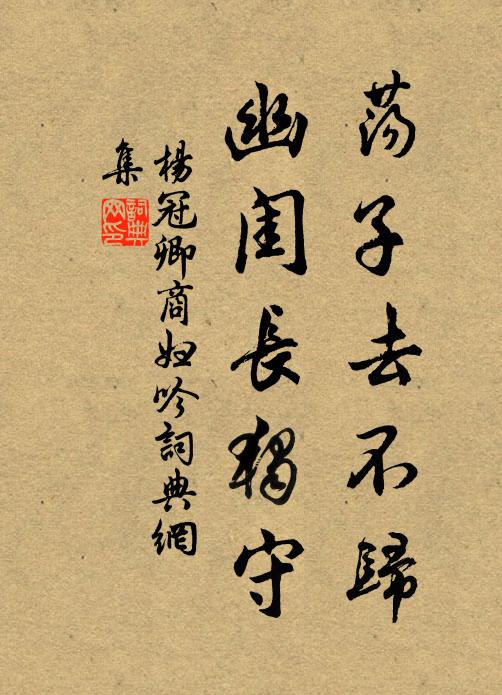 蕩子去不歸
幽閨長獨守
楊冠卿商婦吟詞典網
集
詞典網印